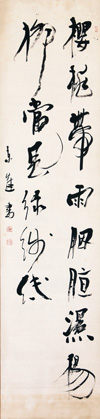 櫻桃帶雨胭脂濕楊
柳當風綠線低
書